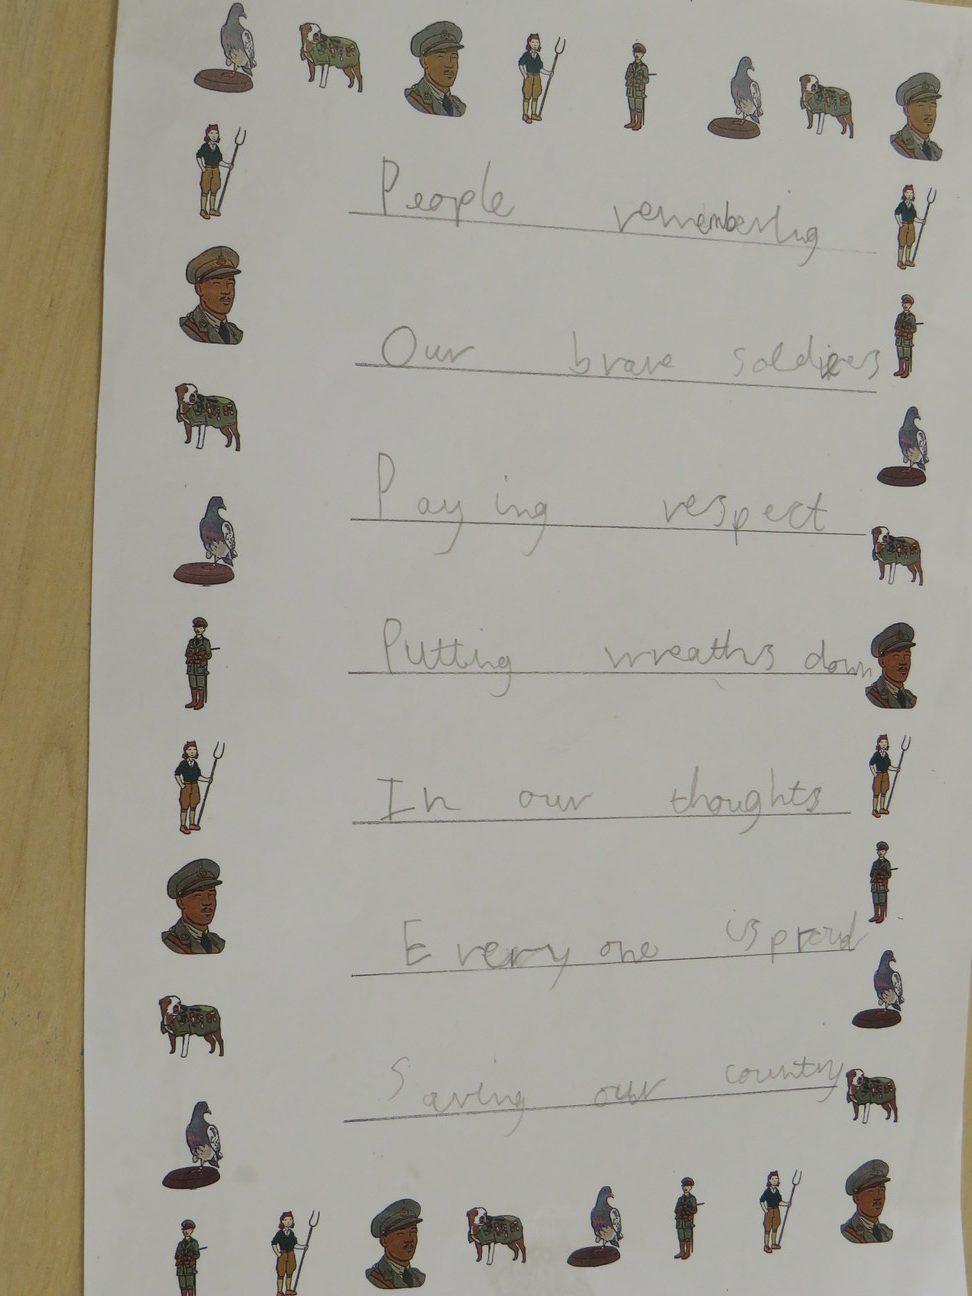 People remembering
Our brave soldiers
Paying respect
Putting wreaths down
In our thoughts
Every one is proud
Saving our country